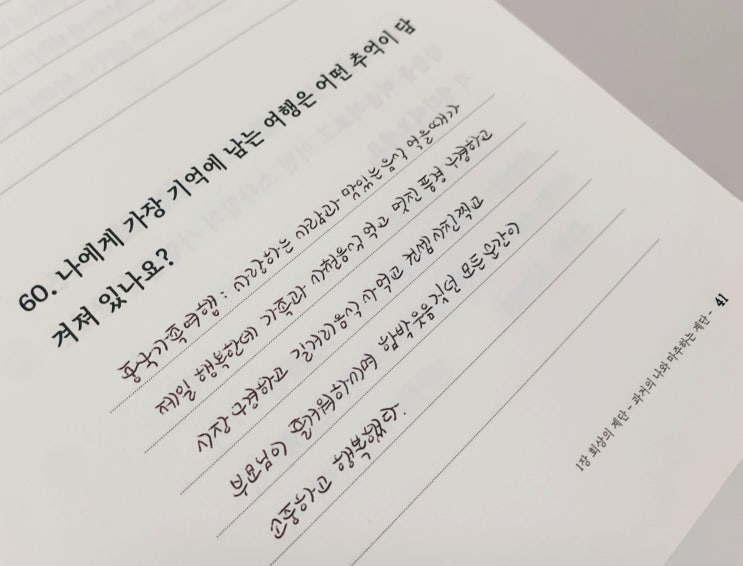 60. 나에게 가장 기억에 남는 여행은 어떤 추억이 담
겨져 있나요?
중국가족여행 : 사랑하는 사람과 맛있는음식 먹을때가
제일 행복한데 가족과 사천음식 먹고 멋진 풍경 구경하고
시장 구경하고 길거리음식 사먹고 인생사진찍고
부모님이 즐거워하시며 함박웃음짓던 모든 순간이
소중하고 행복했다.
1장 회상의 계단 - 과거의 나와 마주하는 계단 - 41